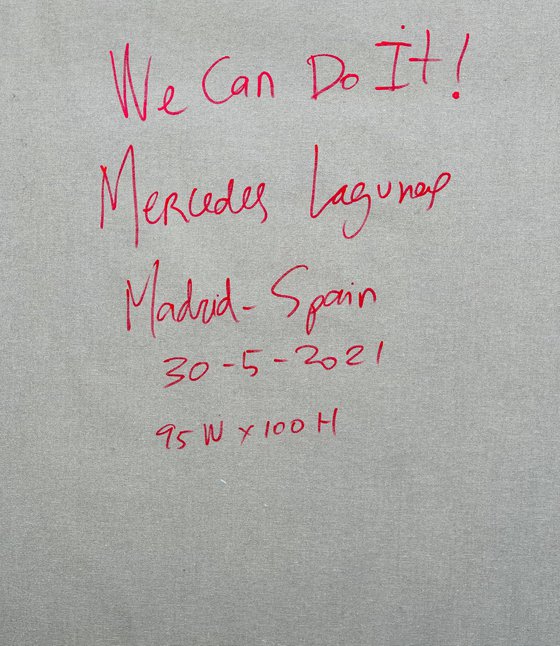 We Can Do It!
Mercedes Lagunas
Madrid - Spain
30-5-2021
95 W x 100 H